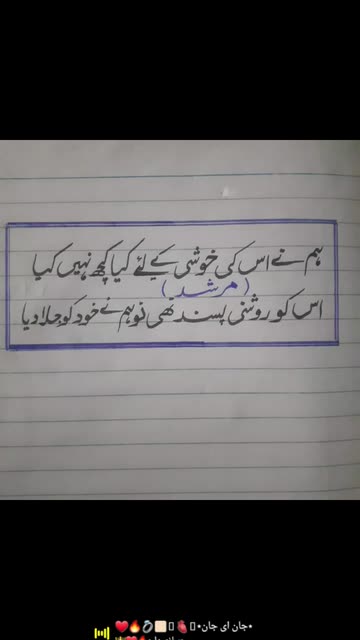 ہم نے اس کی خوشی کے لئے کیا کچھ نہیں کیا
(مرشد)
اس کو روشنی پسند تھی تو ہم نے خود کو جلا دیا
•جان ای جان•